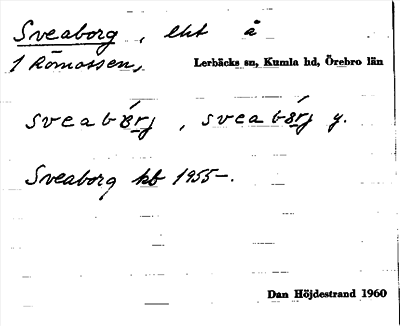 Sveaborg, lht å
1 Römossen, Lerbäcks sn, Kumla hd, Örebro län
sveabórj, sveabórj y.
Sveaborg kb 1955–.
Dan Höjdestrand 1960